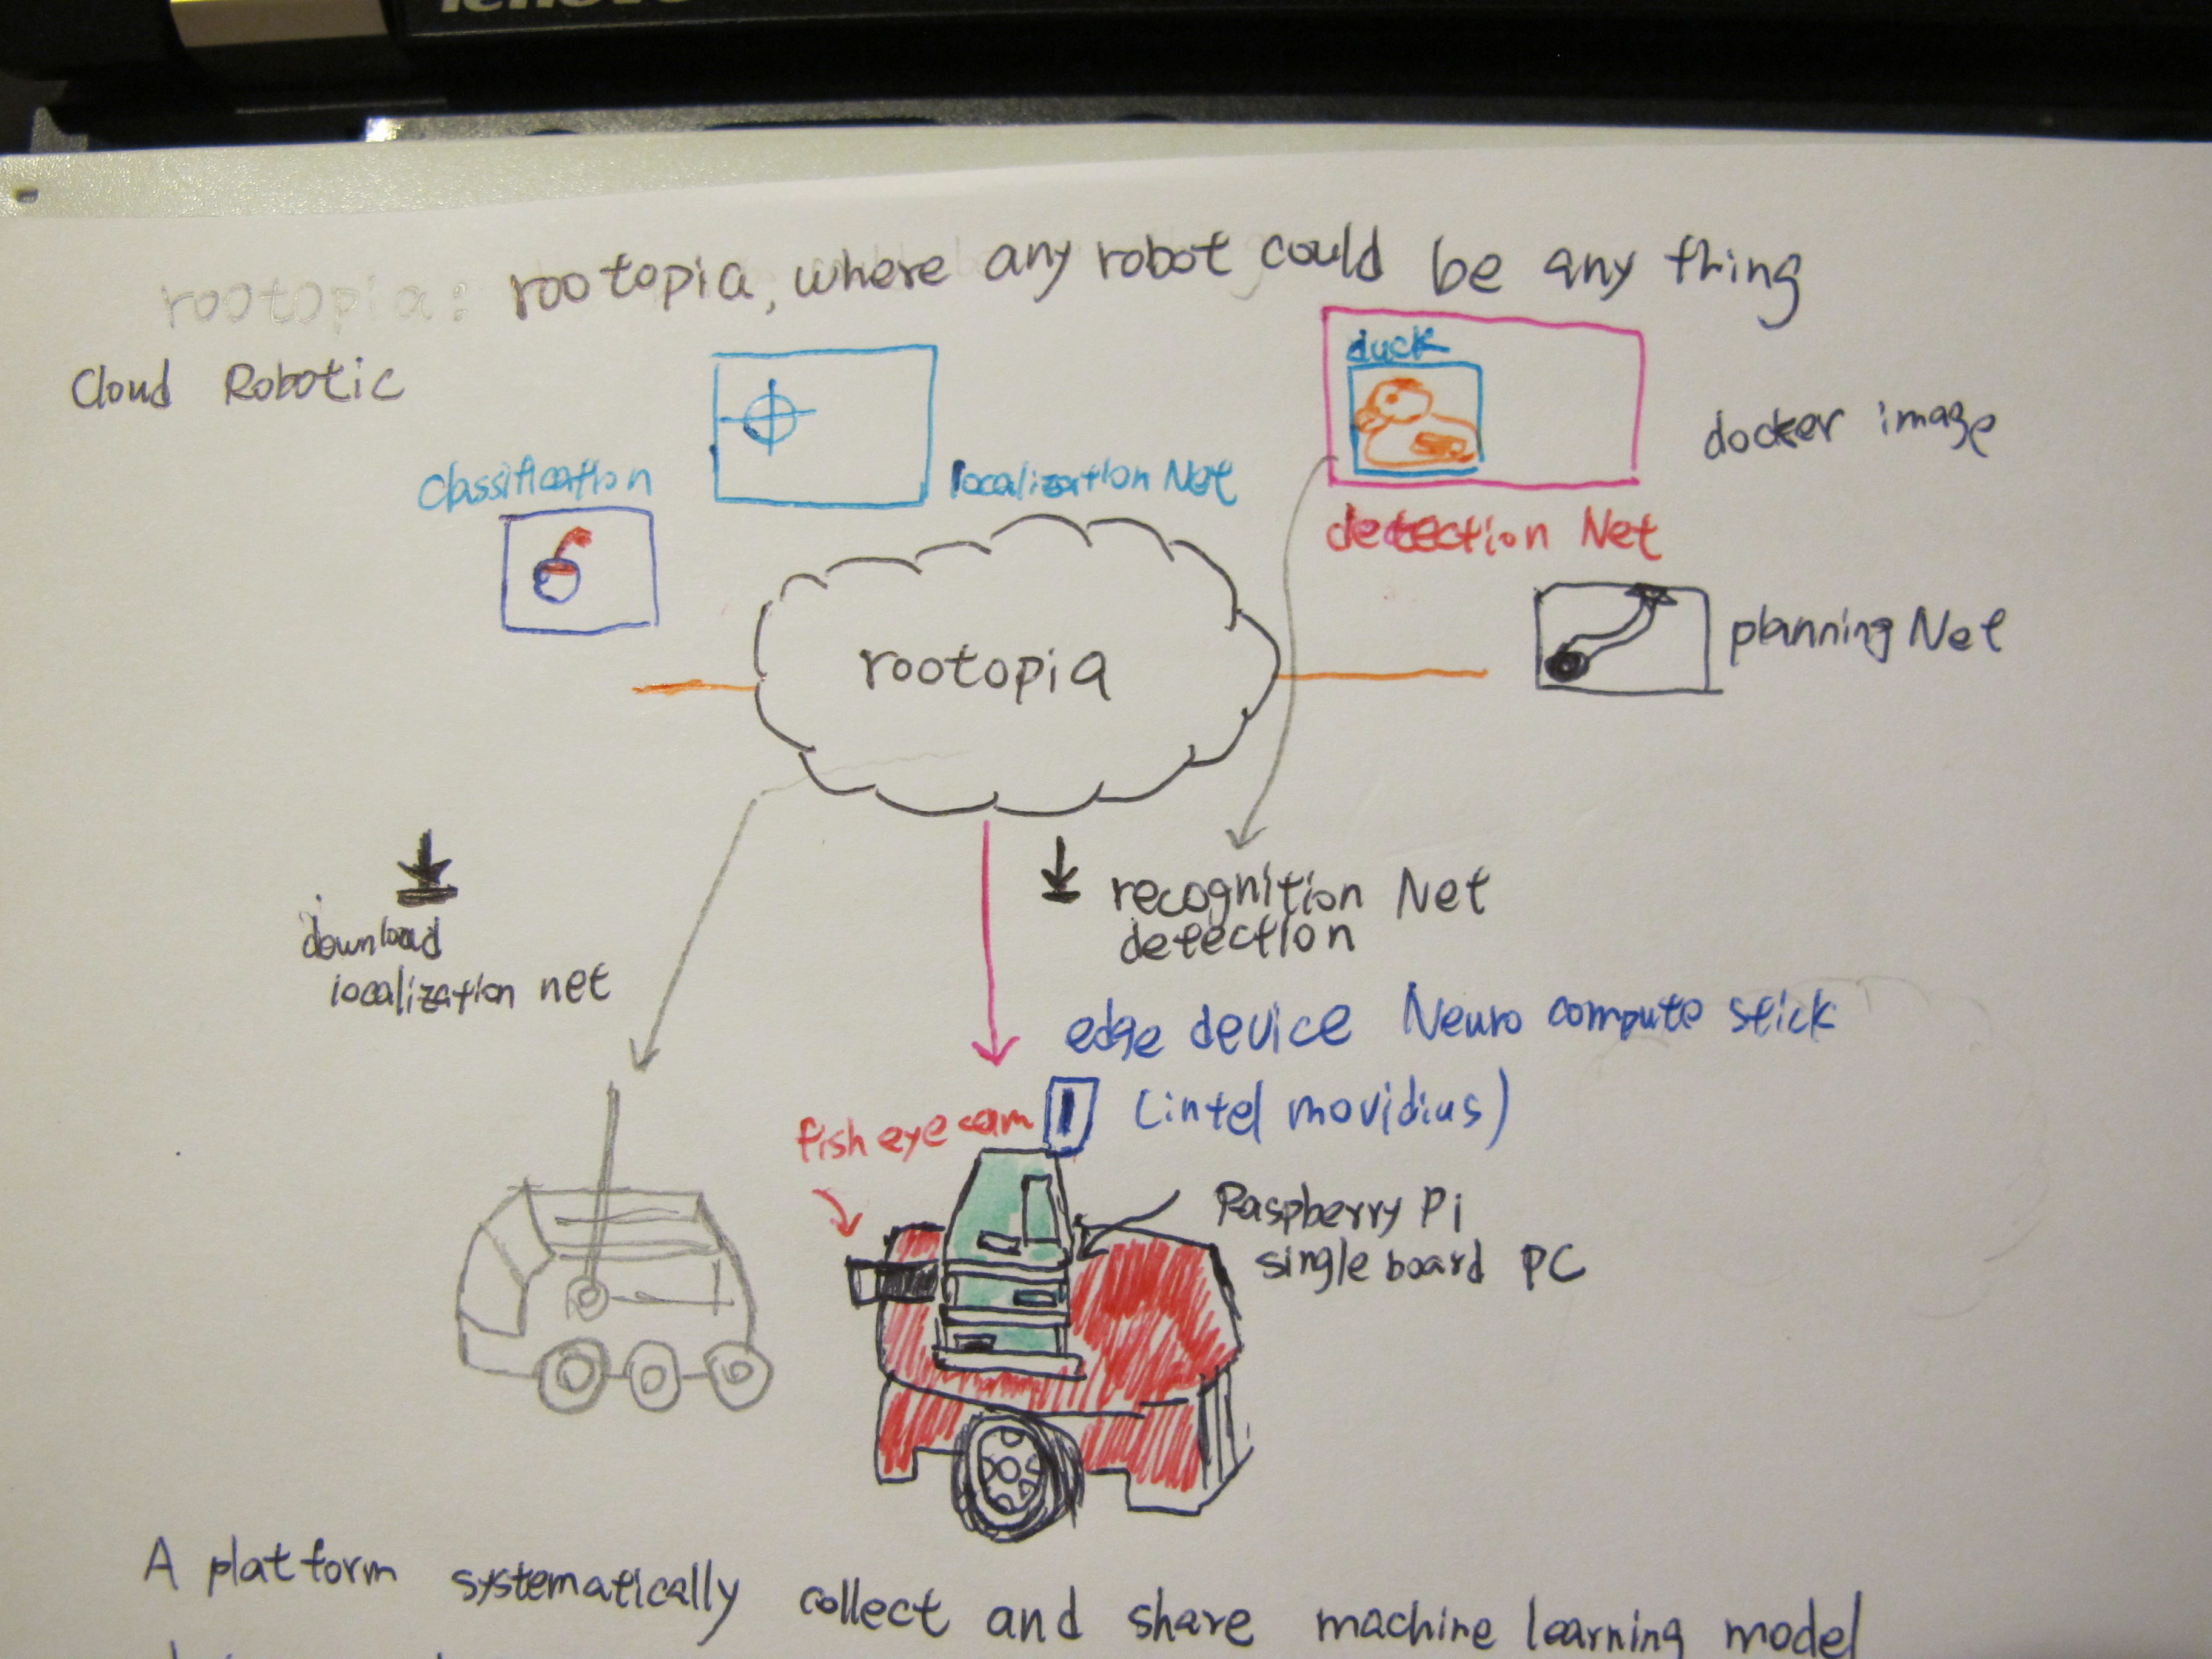 lenovo
rootopia: rootopia, where any robot could be any thing
Cloud Robotic
duck
docker image
classification
localization Net
detection Net
planning Net
rootopia
recognition Net
detection
download
localization net
edge device Neuro compute stick
(intel movidius)
fish eye cam
Raspberry Pi
single board PC
A platform systematically collect and share machine learning model